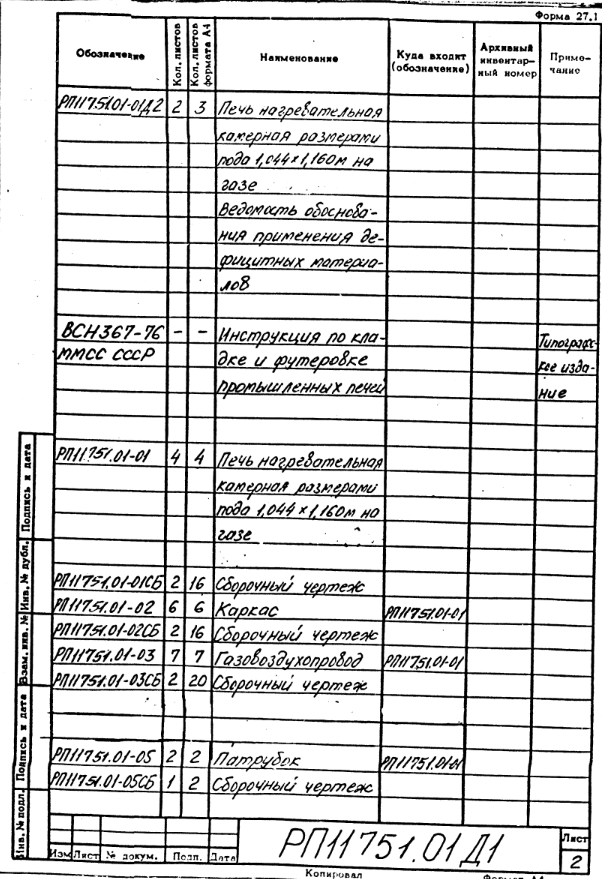 Форма 27.1
Обозначение Кол. листов Кол. листов формата А4 Наименование Куда входит (обозначение) Архивный инвентарный номер Примечание
РП11751.01-01Д2 2 3 Печь нагревательная
камерная размерами
пода 1,044×1,160м на
газе
Ведомость обоснова-
ния применения де-
фицитных материа-
лов
ВСН367-76 - - Инструкция по кла-
ММСС СССР дке и футеровке Типографс-
промышленных печей кое изда-
ние
РП11751.01-01 4 4 Печь нагревательная
камерная размерами
пода 1,044×1,160м на
газе
РП11751.01-01СБ 2 16 Сборочный чертеж
РП11751.01-02 6 6 Каркас РП11751.01-01
РП11751.01-02СБ 2 16 Сборочный чертеж
РП11751.01-03 7 7 Газовоздухопровод РП11751.01-01
РП11751.01-03СБ 2 20 Сборочный чертеж
РП11751.01-05 2 2 Патрубок РП11751.01-01
РП11751.01-05СБ 1 2 Сборочный чертеж
Инв. № подл. Подпись и дата Взам. инв. № Инв. № дубл. Подпись и дата
РП11751.01Д1
Лист
2
Изм Лист № докум. Подп. Дата
Копировал Формат А4